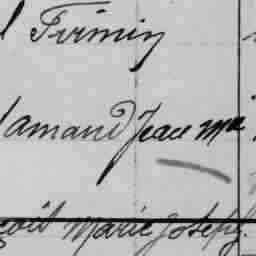 Firmin
amand Jean Ma
Marie Joseph